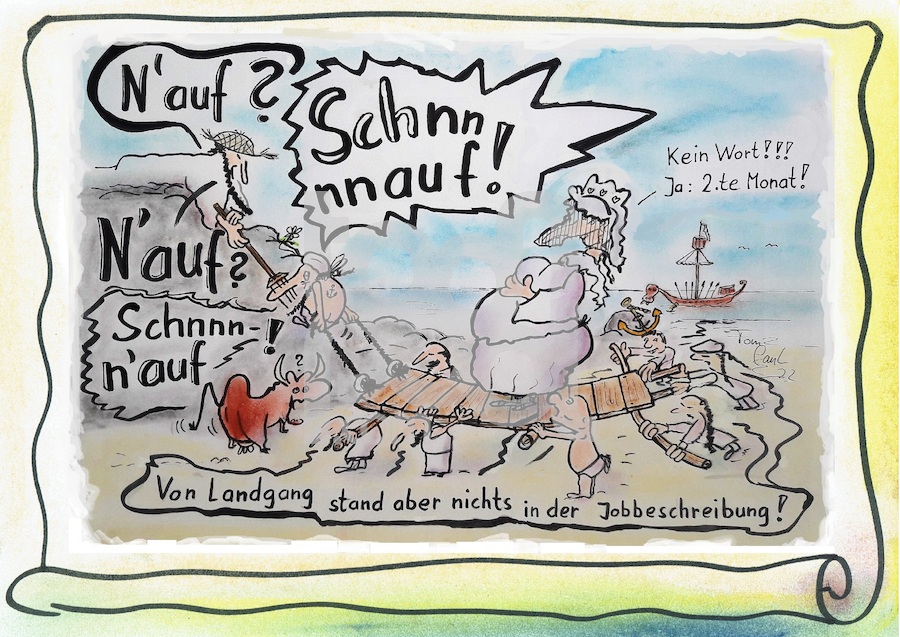 N'auf?
Schnn
nnnauf!
Kein Wort!!!
Ja: 2.te Monat!
N'auf?
Schnnn-
n'auf!
Von Landgang stand aber nichts in der Jobbeschreibung!